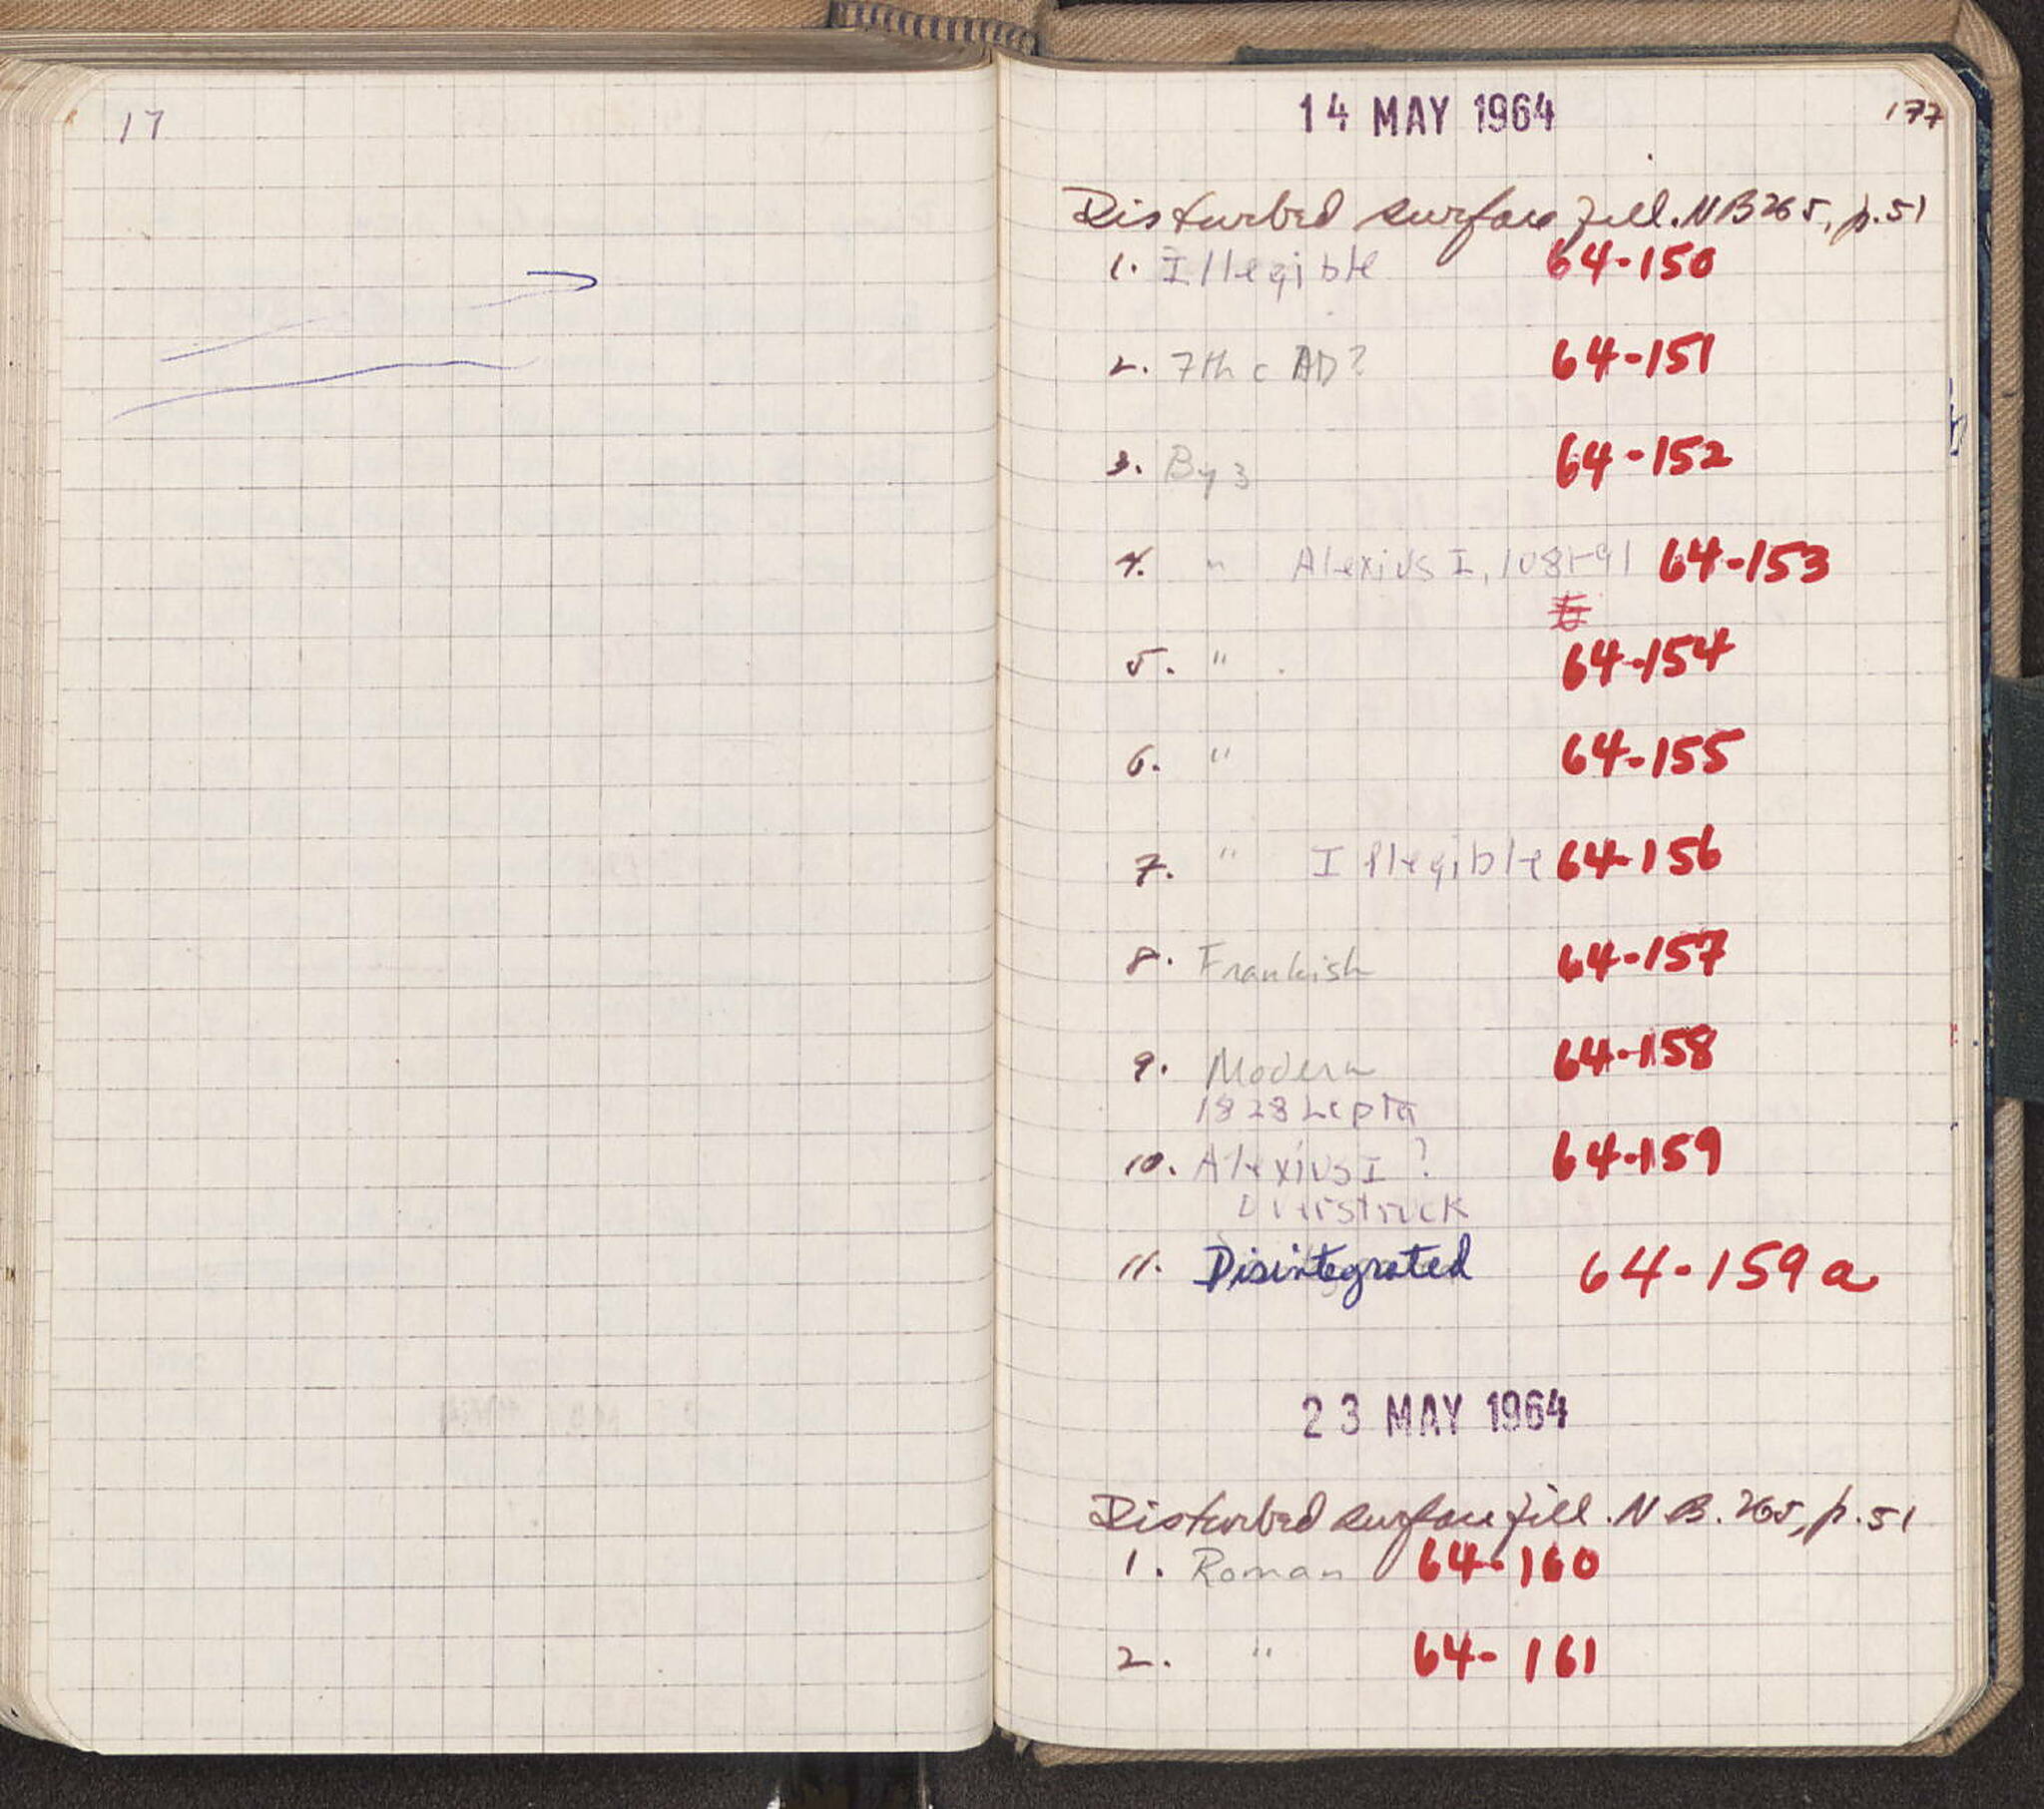 17
14 MAY 1964
177
Disturbed surface fill. NB 265, p. 51
1. Illegible 64-150
2. 7th c AD? 64-151
3. Byz 64-152
4. " Alexius I, 1081-91 64-153
5. " 64-154
6. " 64-155
7. " Illegible 64-156
8. Frankish 64-157
9. Modern 64-158
1828 Lepta
10. Alexius I? 64-159
Overstruck
11. Disintegrated 64-159a
23 MAY 1964
Disturbed surface fill. N B. 265, p. 51
1. Roman 64-160
2. " 64-161